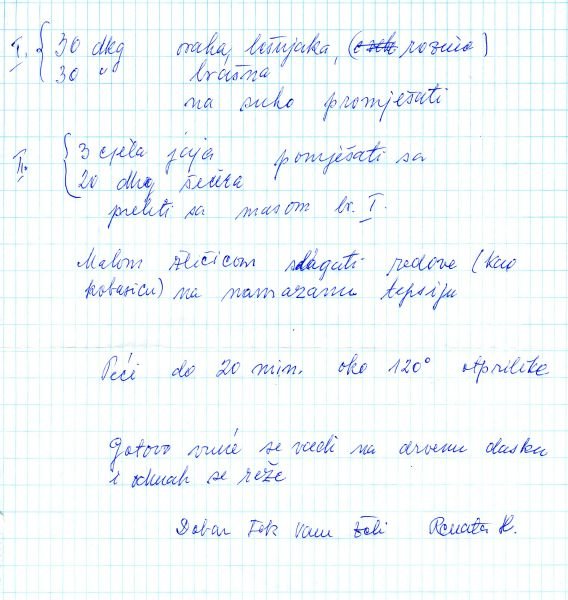 I. { 30 dkg oraha, lešnjaka, (rozina)
30 " brašna
na suho promješati
II. { 3 cjela jaja pomješati sa
20 dkg šećera
preliti sa masom br. I.
Malom žličicom slagati redove (kao
kobasicu) na namazanu tepsiju
Peći do 20 min. oko 120° otprilike
Gotovo vruće se vadi na drvenu dasku
i odmah se reže
Dobar Tek Vam želi Renata H.